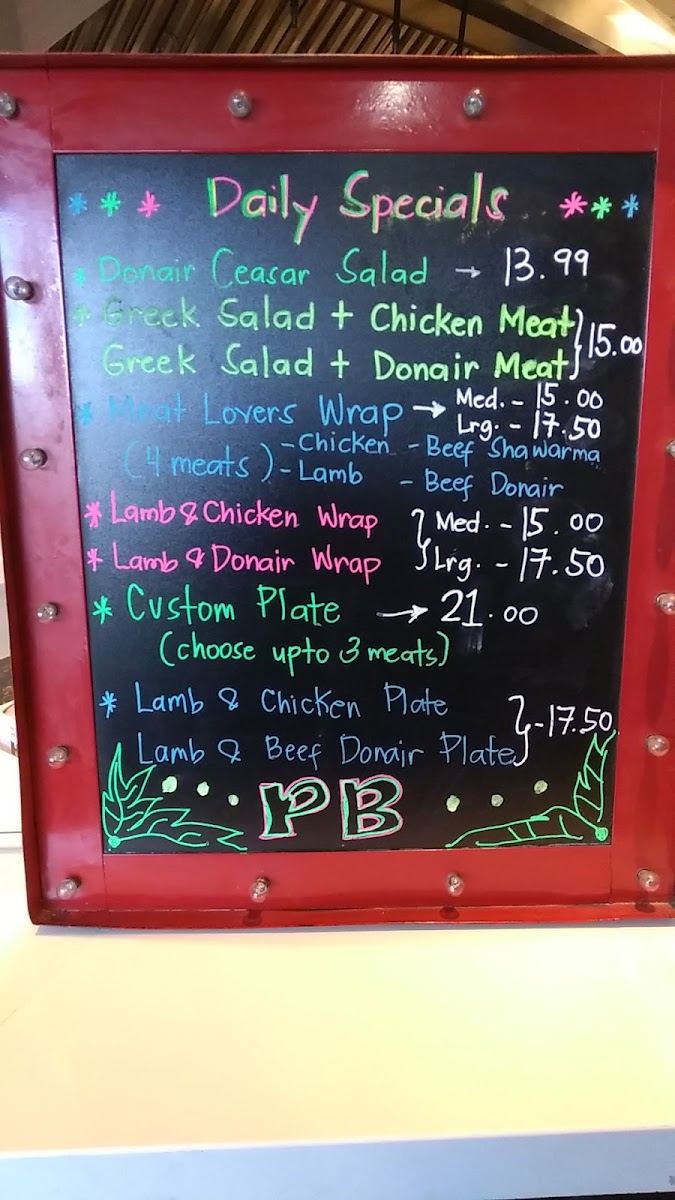 * * * Daily Specials * * *
* Donair Ceasar Salad → 13.99
* Greek Salad + Chicken Meat
Greek Salad + Donair Meat } 15.00
* Meat Lovers Wrap → Med. - 15.00
Lrg. - 17.50
(4 meats) - Chicken - Beef Shawarma
- Lamb - Beef Donair
* Lamb & Chicken Wrap } Med. - 15.00
* Lamb & Donair Wrap } Lrg. - 17.50
* Custom Plate → 21.00
(choose upto 3 meats)
* Lamb & Chicken Plate
Lamb & Beef Donair Plate } - 17.50
PB